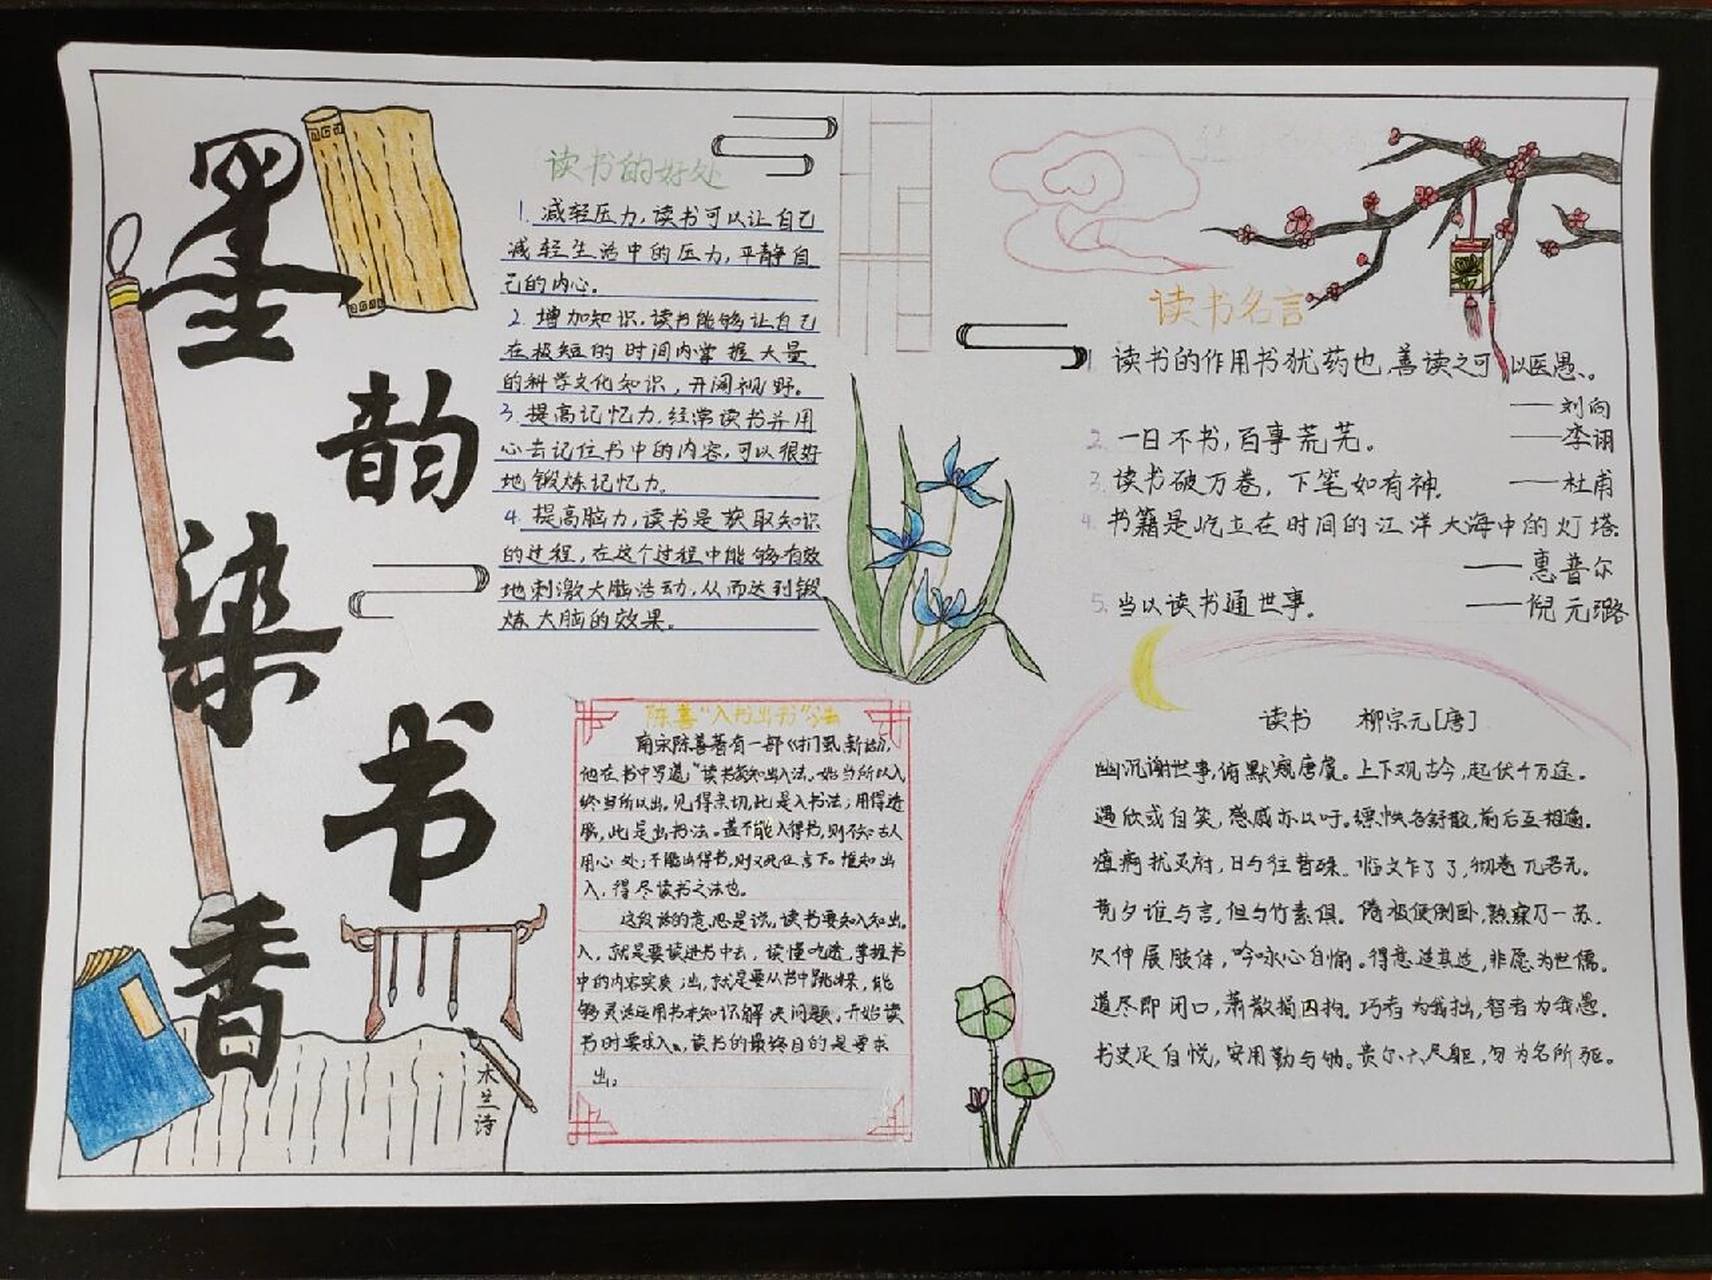 墨
韵
染
书
香
木兰诗
读书的好处
1. 减轻压力,读书可以让自己
减轻生活中的压力,平静自
己的内心。
2. 增加知识.读书能够让自己
在极短的时间内掌握大量
的科学文化知识,开阔视野。
3. 提高记忆力.经常读书并用
心去记住书中的内容,可以很好
地锻炼记忆力。
4. 提高脑力,读书是获取知识
的过程,在这个过程中能够有效
地刺激大脑活动,从而达到锻
炼大脑的效果。
陈善“入书出书”法
南宋陈善著有一部
他在书中写道,“读书须知出入法。始当所以入
终当所以出。见得亲切,此是入书法;用得透
脱,此是出书法。盖不能入得书,则不知古人
用心处;不能出得书,则又死在言下。惟知出
入,得尽读书之法也。
这段话的意思是说,读书要知入知出。
入,就是要读进书中去,读懂吃透,掌握书
中的内容实质;出,就是要从书中跳出来,能
够灵活运用书本知识解决问题,开始读
书时要求入。读书的最终目的是要求
出。
读书名言
1. 读书的作用书犹药也,善读之可以医愚。
——刘向
2. 一日不书,百事荒芜。 ——李诩
3. 读书破万卷,下笔如有神. ——杜甫
4. 书籍是屹立在时间的江洋大海中的灯塔.
——惠普尔
5. 当以读书通世事. ——倪元璐
读书 柳宗元[唐]
幽沉谢世事,俯默窥唐虞。上下观古今,起伏千万途。
遇欣或自笑,感戚亦以吁。缥帙各舒散,前后互相逾。
瘴痾扰灵府,日与往昔殊。临文乍了了,彻卷兀若无。
竟夕谁与言,但与竹素俱。倦极便倒卧,熟寐乃一苏.
欠伸展肢体,吟咏心自愉。得意适其适,非愿为世儒。
道尽即闭口,萧散捐囚拘。巧者为我拙,智者为我愚.
书史足自悦,安用勤与劬。贵尔六尺躯,勿为名所驱。